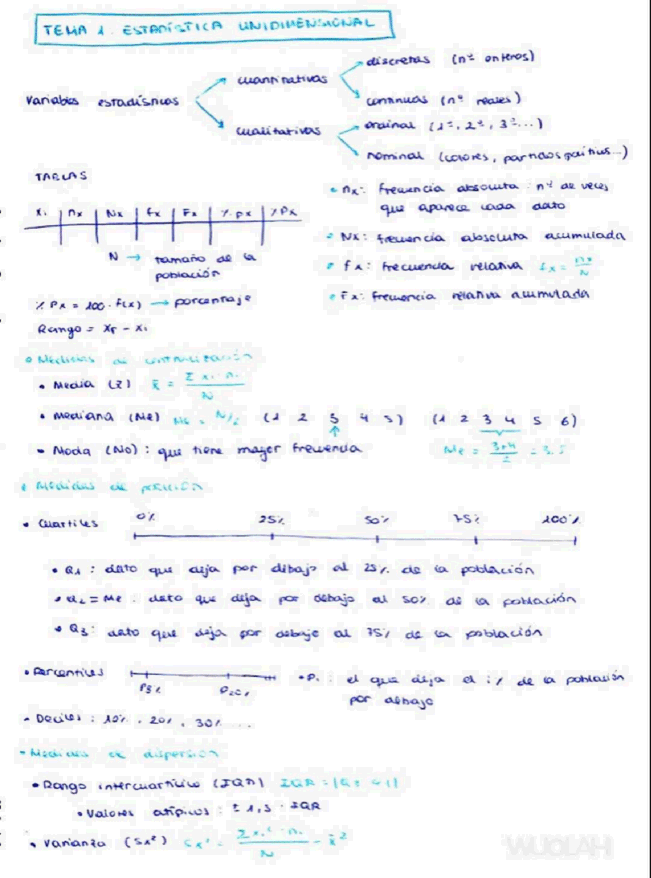 TEMA 1. ESTADÍSTICA UNIDIMENSIONAL
Variables estadísticas
cuantitativas
discretas (nº enteros)
continuas (nº reales)
cualitativas
ordinal (1º, 2º, 3º...)
nominal (colores, partidos políticos...)
TABLAS
xi | nx | Nx | fx | Fx | % px | % Px
N → tamaño de la población
% Px = 100 · f(x) → porcentaje
Rango = xF - xi
• nx: frecuencia absoluta: nº de veces
que aparece cada dato
• Nx: frecuencia absoluta acumulada
• fx: frecuencia relativa fx = nx/N
• Fx: frecuencia relativa acumulada
• Medidas de centralización
• Media (x̄) x̄ = Σ xi · ni / N
• Mediana (Me) Me = N/2 (1 2 3 4 5) (1 2 3 4 5 6)
↑
Me = 3+4 / 2 = 3,5
• Moda (Mo): que tiene mayor frecuencia
• Medidas de posición
• Cuartiles 0% 25% 50% 75% 100%
• Q1: dato que deja por debajo al 25% de la población
• Q2 = Me: dato que deja por debajo al 50% de la población
• Q3: dato que deja por debajo al 75% de la población
• Percentiles P5% P20%
• Pi: el que deja el i% de la población
por debajo
- Deciles: 10%, 20%, 30% ...
• Medidas de dispersión
• Rango intercuartílico (IQR)
• Valores atípicos: ± 1,5 · IQR
• Varianza (Sx²) Sx² = Σ xi² · ni / N - x̄²
WUOLAH